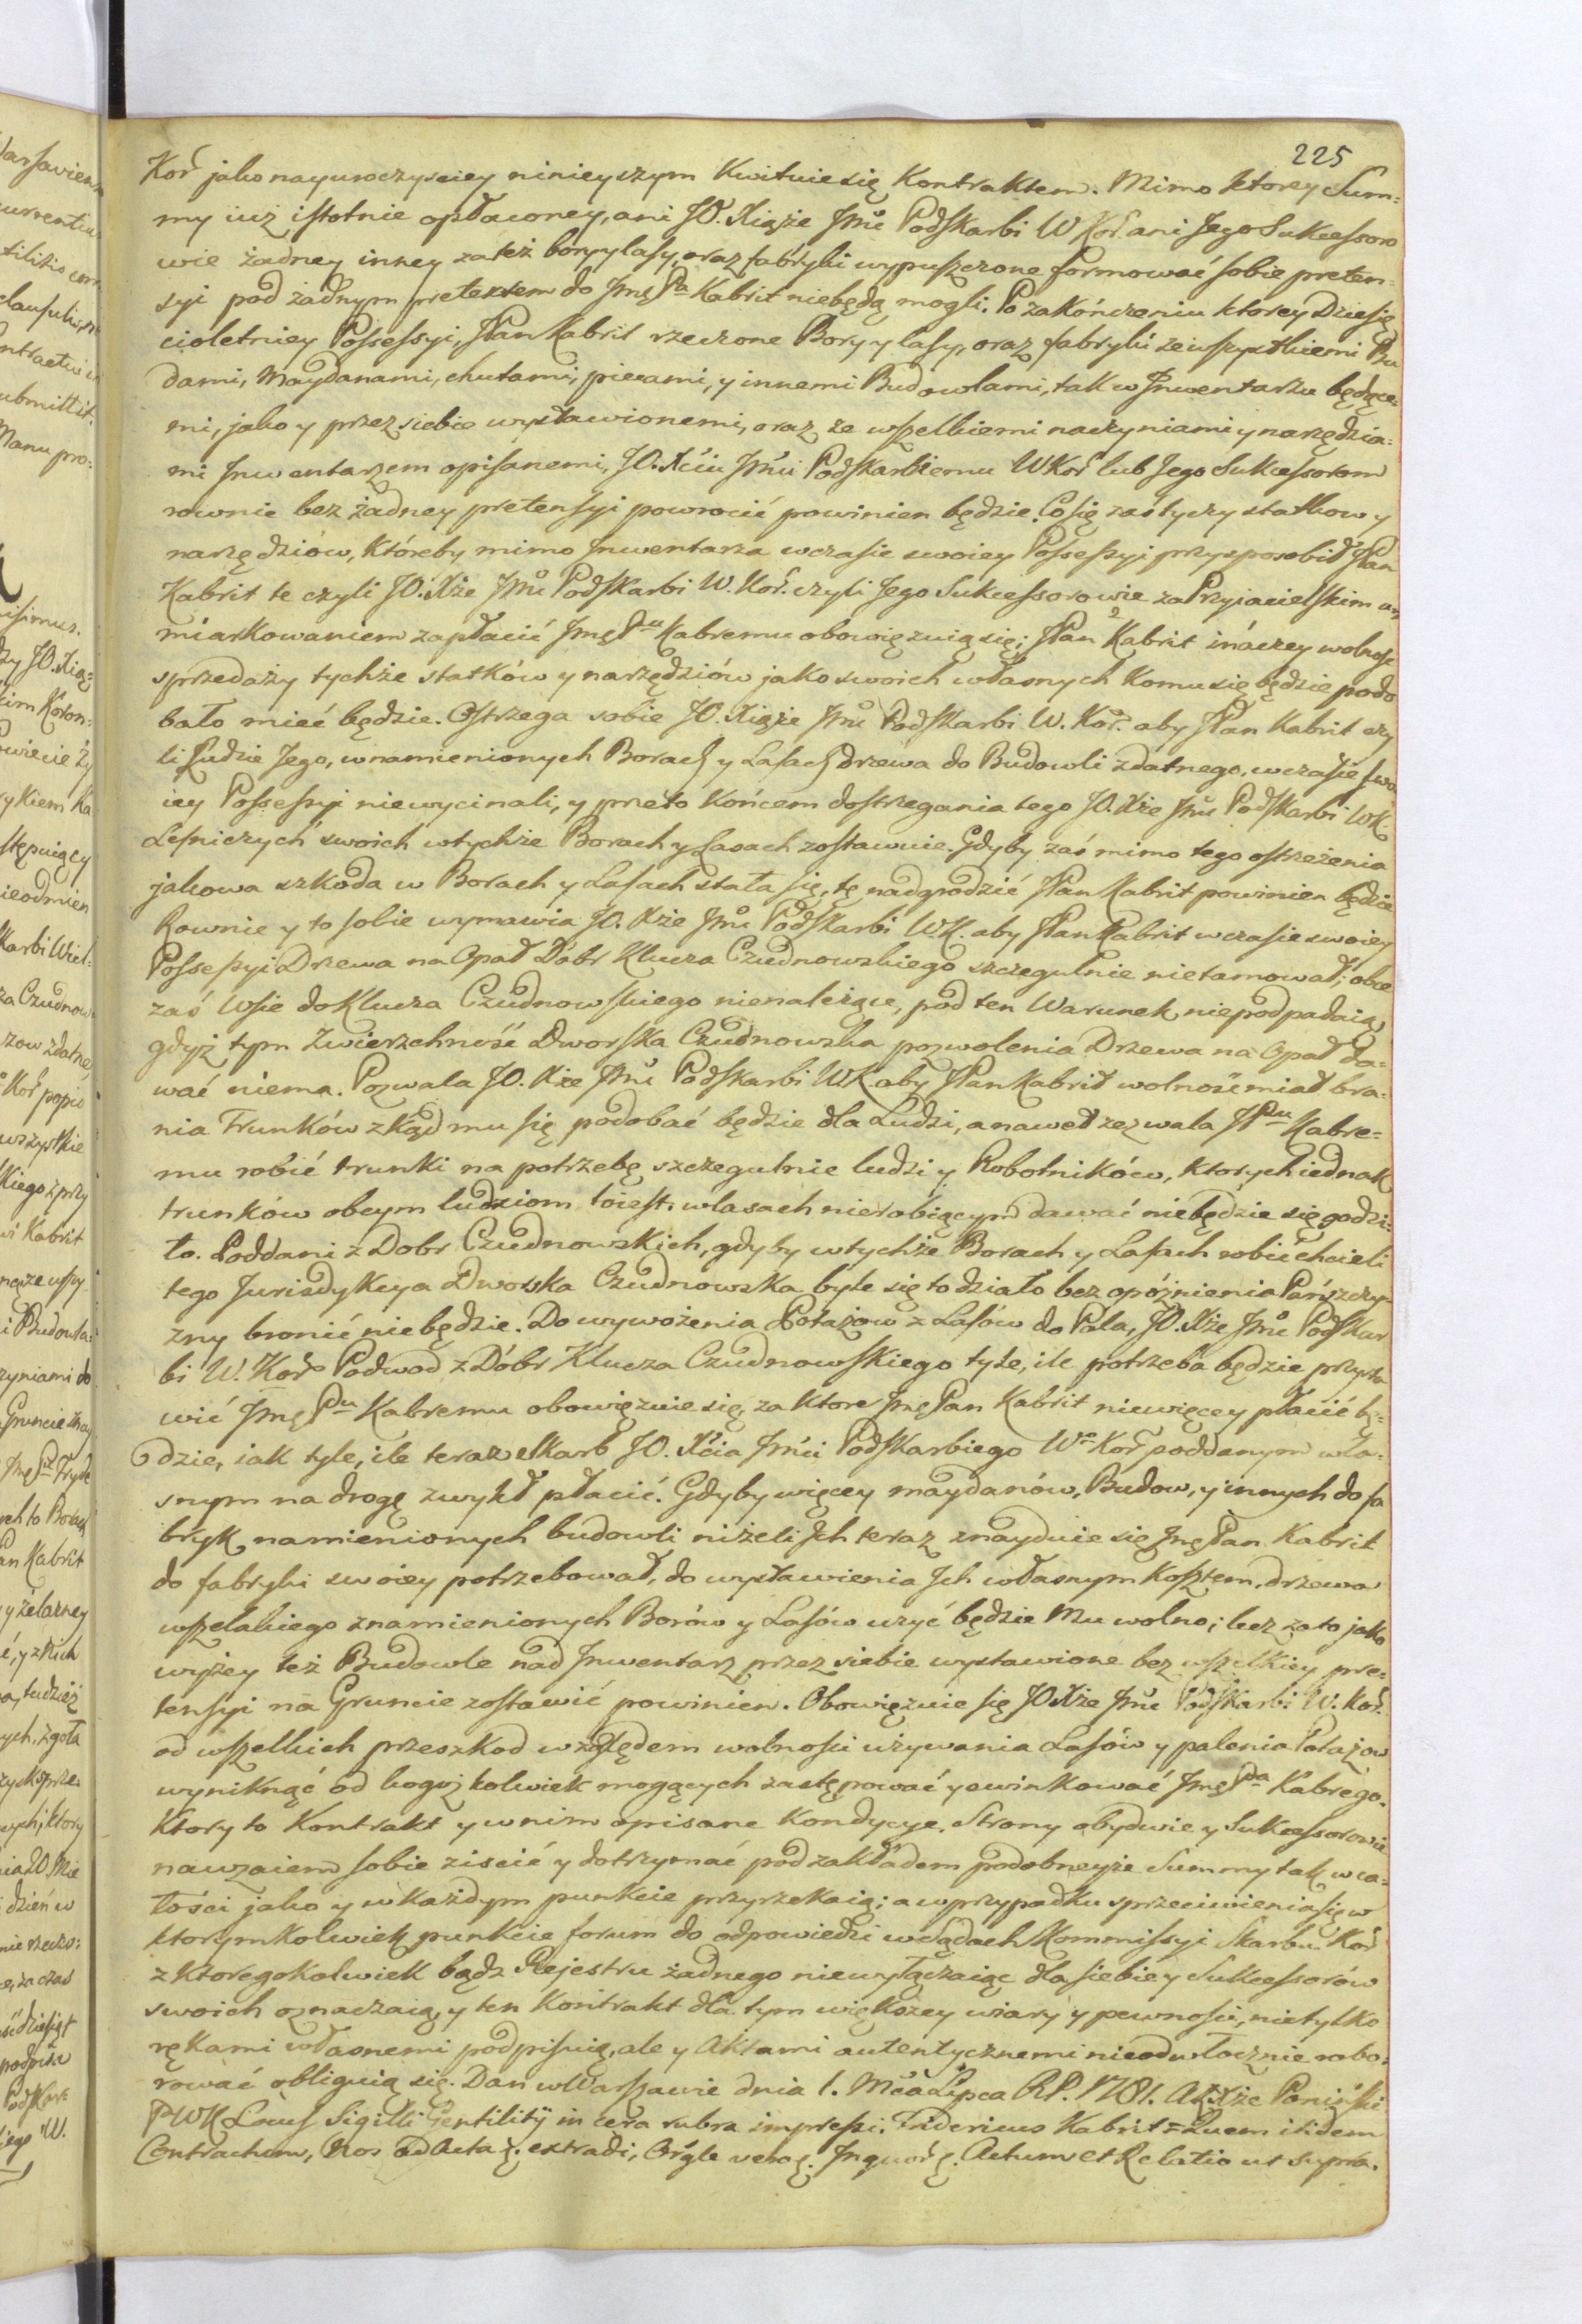 225
Koř jako nayuroczysciey ninieyszym Kwituie się Kontraktem. Mimo ktorey Sum-
my iuż istotnie opłaconey, ani JO. Xiąże Jmć Podskarbi W Koř. ani Jego Sukcessoro
wie żadney inney za też bory y lasy, oraz fabryki wypuszczone formować sobie preten-
syi pod żadnym pretextem do Jmę Pa Kabrit niebędą mogli. Po zakończeniu ktorey Dziesię
cioletniey Possessyi, JPan Kabrit rzeczone Bory y lasy, oraz fabryki ze wszystkiemi Bu
dami, Maydanami, chutami, piecami, y innemi Budowlami, tak w Inwentarzu będące-
mi, jako y przez siebie wystawionemi, oraz ze wszelkiemi naczyniami y narzędzia-
mi Inwentarzem opisanemi, JO. Xciu Jmci Podskarbiemu W Koř lub Jego Sukcessorom
rownie bez żadney pretensyi powrocić powinien będzie. Co się zaś tyczy statkow y
narzędziów, któreby mimo Inwentarza wczasie swoiey Possessyi przysposobił JPan
Kabrit te czyli JO. Xże Jmć Podskarbi W. Koř. czyli Jego Sukcessorowie za Przyjacielskim u
miarkowaniem zapłacić Jmę Pu Kabremu obowięzuią się; JPan Kabrit ináczey wolność
sprzedaży tychże statków y narzędziów jako swoich własnych komu się będzie podo
bało mieć będzie. Ostrzega sobie JO. Xiąże Jmć Podskarbi W. Koř. aby JPan Kabrit czy
li Ludzie Jego, wnamienionych Borach y Lasach drzewa do Budowli zdatnego, wczasie swo
iey Possessyi niewycinali, y przeto końcem dostrzegania tego JO. Xże Jmć Podskarbi WK.
Lesniczych swoich wtychże Borach y Lasach zostawuie. Gdyby zaś mimo tego ostrzeżenia
jakowa szkoda w Borach y Lasach stała się, tę nadgrodzić JPan Kabrit powinien będzie
Rownie y to sobie wymawia JO. Xże Jmć Podskarbi W.K. aby JPan Kabrit wczasie swoiey
Possessyi Drzewa na Opał Dóbr Klucza Czudnowskiego szczegulnie nietamował; obce
zaś Wsie do Klucza Czudnowskiego nienależące, pod ten Warunek niepodpadaią,
gdyż tym Zwierzchność Dworska Czudnowska pozwolenia Drzewa na Opał da-
wać niema. Pozwala JO. Xże Jmć Podskarbi WK aby JPan Kabrit wolność miał bra-
nia Trunków zkąd mu się podobać będzie dla Ludzi, a nawet zezwala JPu Kabre-
mu robić trunki na potrzebę szczegulnie ludzi y Robotników, ktorych iednak
trunków obcym ludziom toiest wlasach nierobiącym dawać niebędzie się godzi-
ło. Poddani z Dobr Czudnowskich, gdyby wtychże Borach y Lasach robić chcieli
tego Jurisdykcya Dworska Czudnowska byle się to działo bez opóźnienia Pańszczy-
zny bronić niebędzie. Do wywożenia Potażow z Lasów do Pala, JO. Xże Jmć Podskar
bi W. Koř Podwod z Dóbr Klucza Czudnowskiego tyle, ile potrzeba będzie przysta
wić Jmę Pu Kabremu obowięzuie się, za ktore Jmę Pan Kabrit niewięcey płacić bę-
dzie, iak tyle, ile teraz skarb JO. Xcia Jmci Podskarbiego Wo Koř poddanym wła-
snym na drogę zwykł płacić. Gdyby więcey maydanów, Budow, y innych do fa
bryk namienionych budowli niżeli Ich teraz znayduie się Jmę Pan Kabrit
do fabryki swoiey potrzebował, do wystawienia Ich własnym kosztem, drzewa
wszelakiego znamienionych Borów y Lasów użyć będzie Mu wolno; lecz za to jako
wyżey też Budowle nad Inwentarz przez siebie wystawione bez wszelkiey pre-
tensyi na Gruncie zostawić powinien. Obowięzuie się JO Xże Jmć Podskarbi W. Koř.
od wszelkich przeszkod względem wolności używania Lasów y palenia Potażow
wyniknąć od kogożkolwiek mogących zastępować y ewinkować Jmę Pa Kabrego.
Ktory to Kontrakt y wnim opisane Kondycye, Strony obydwie y Sukcessorowie
nawzaiem sobie ziscić y dotrzymać pod zakładem podobneyże Summy tak wca-
łości jako y wkażdym punkcie przyrzekaią; a wprzypadku sprzeciwienia się w
ktorymkolwiek punkcie forum do odpowiedzi w Sądach Kommissyi Skarbu Koř
z ktoregokolwiek bądz Rejestru żadnego niewyłączaiąc dla siebie y Sukcessorów
swoich oznaczaią, y ten Kontrakt dla tym większey wiary y pewności, nietylko
rękami własnemi podpisuią, ale y Aktami autentycznemi nieodwłocznie robo-
rować obliguią się. Dan w Warszawie dnia 1. Mca Lipca R.P. 1781. A Xże Poniński
PWK Locus Sigilli Gentilitÿ in cera rubra impressi. Fridericus Kabrit = Quem itidem
Contractum, Nos ad Acta extradi, Actum et Relatio ut supra.